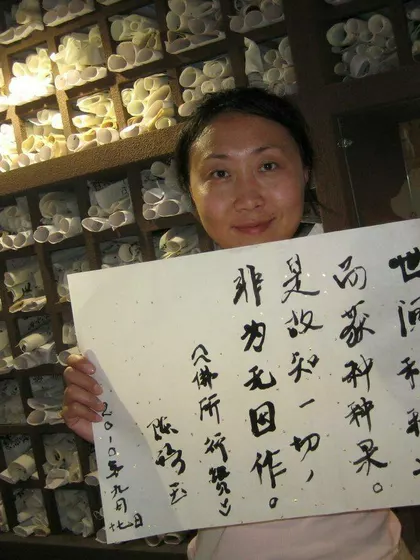 世间种种
而获种种果。
是故知一切，
非为无因作。
《佛所行赞》
陈
2010年九月十七日